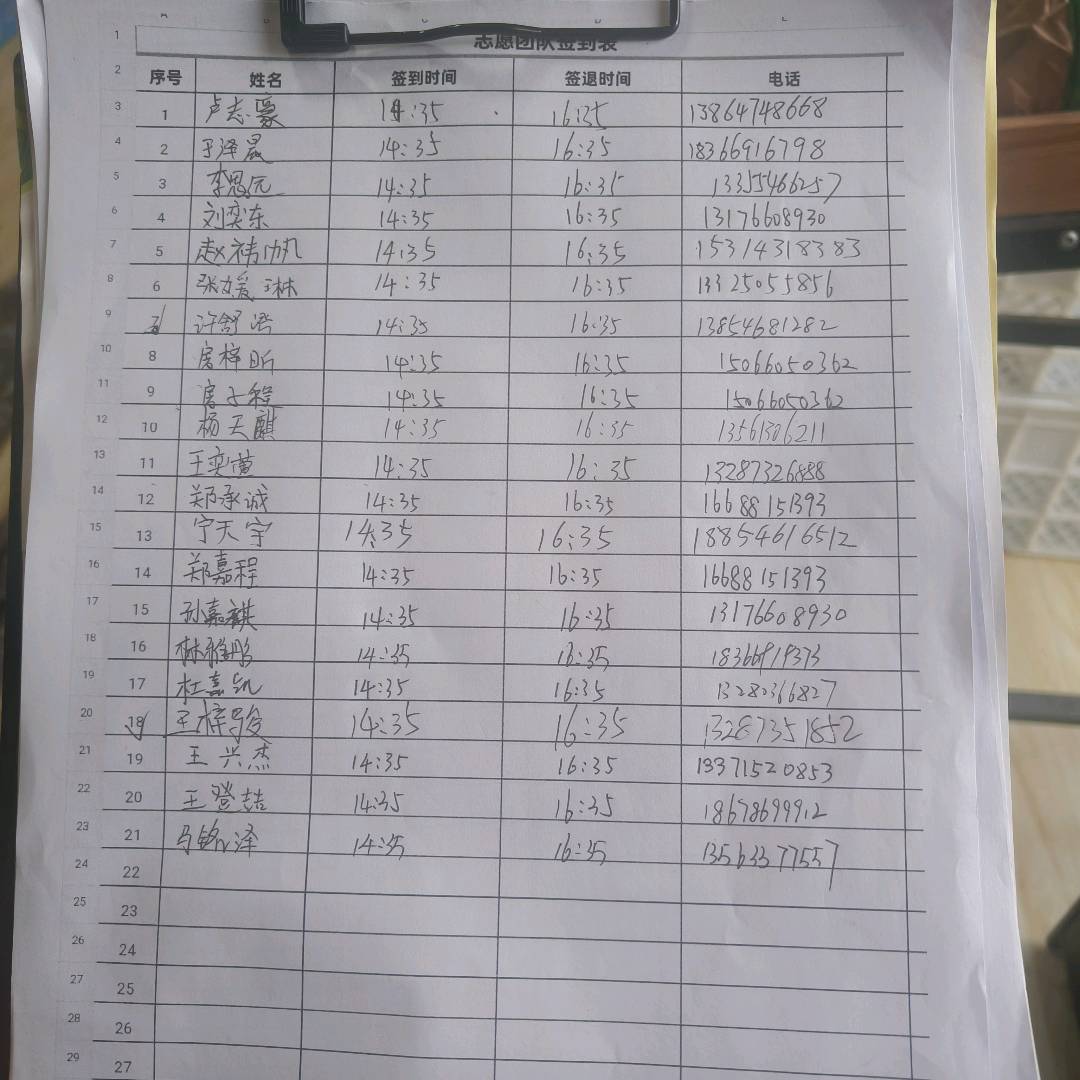 A B C D E
1 志愿团队签到表
2 序号 姓名 签到时间 签退时间 电话
3 1 卢志豪 14:35 16:35 13864748668
4 2 于泽晟 14:35 16:35 18366916798
5 3 李思远 14:35 16:35 13355466257
6 4 刘奕东 14:35 16:35 13176608930
7 5 赵祎帆 14:35 16:35 15314318383
8 6 张媛琳 14:35 16:35 13325055856
9 7 许舒涵 14:35 16:35 13854681282
10 8 房梓昕 14:35 16:35 15066050362
11 9 房子程 14:35 16:35 15066050362
12 10 杨天麒 14:35 16:35 13561306211
13 11 王奕 14:35 16:35 13287326888
14 12 郑承诚 14:35 16:35 16688151393
15 13 宁天宇 14:35 16:35 18854616512
16 14 郑嘉程 14:35 16:35 16688151393
17 15 孙嘉祺 14:35 16:35 13176608930
18 16 林雅彤 14:35 16:35
19 17 杜嘉凯 14:35 16:35 13280366827
20 18 王梓骏 14:35 16:35 13287351852
21 19 王兴杰 14:35 16:35 13371520853
22 20 王登喆 14:35 16:35 18678699912
23 21 马铭泽 14:35 16:35 13563377557
24 22
25 23
26 24
27 25
28 26
29 27